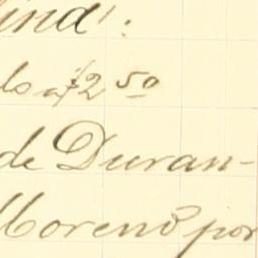 ind.:
ls a $2 50
de Duran-
Moreno por